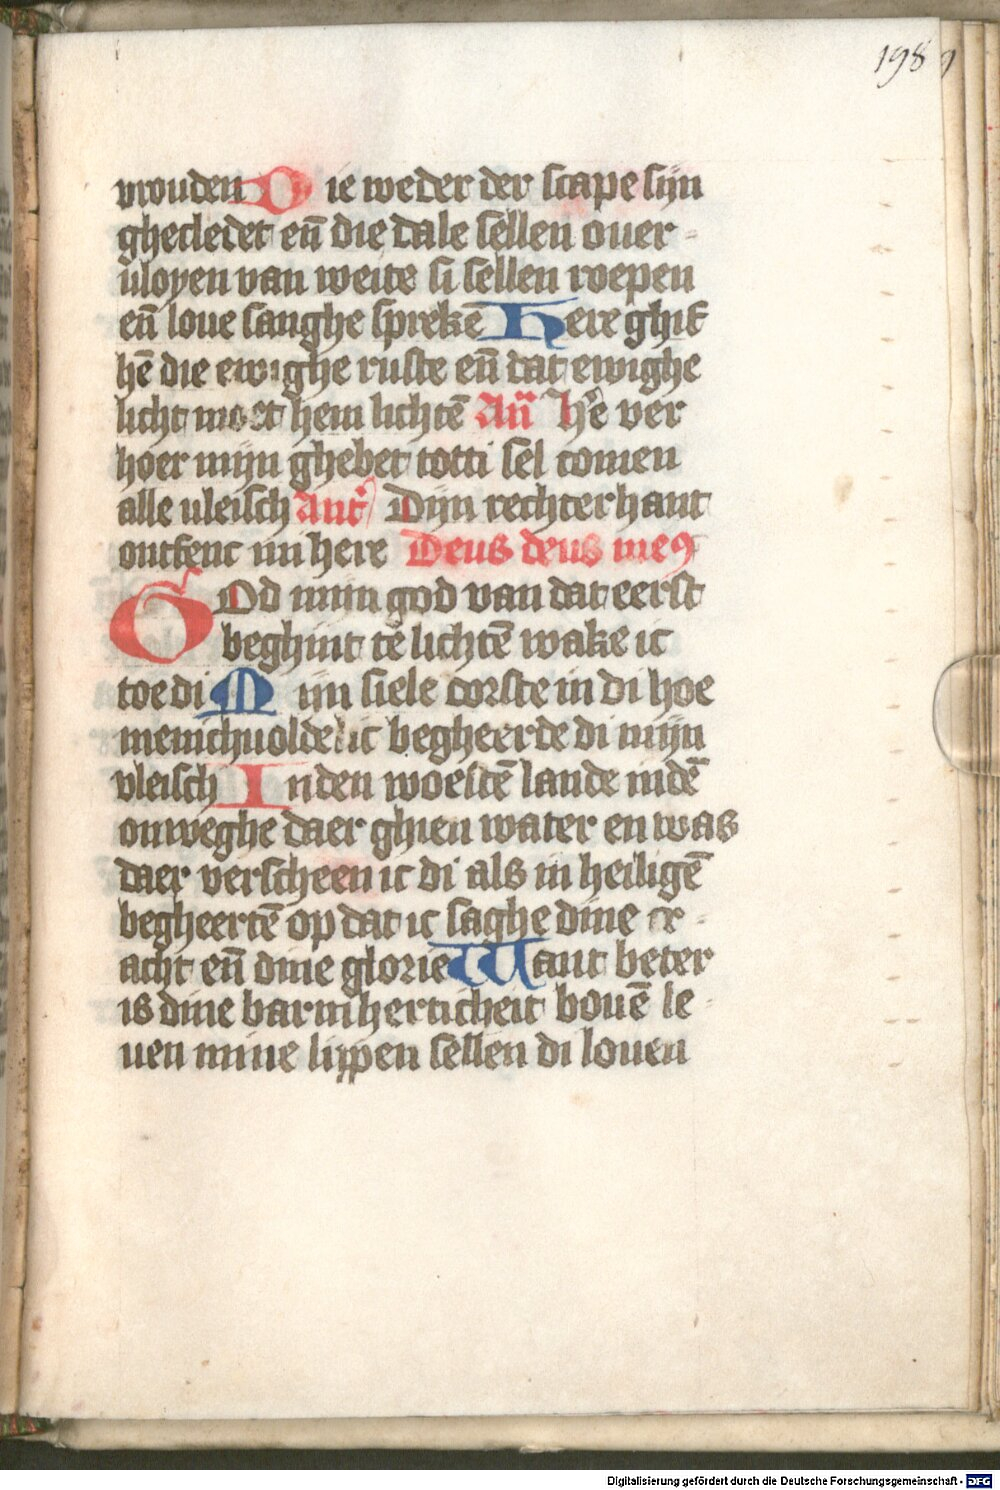 198
vrouden Die weder der scape sijn
ghecledet en̄ die dale sellen ouer-
vloyen van weite si sellen roepen
en̄ loue sanghe sprekē Here ghif
hē die ewighe ruste en̄ dat ewighe
licht moet hem lichtē An̄ H̾e ver
hoer mijn ghebet totti sel comen
alle vleisch Ant̾ Dijn rechterhant
ontfenc mi here Deus deus meꝰ
GOd mijn god van dat eerst
beghint tē lichtē wake ic
toe di Mijn siele dorste in di hoe
menichuoldelic begheerde di mijn
vleisch Inden woestē lande indē
onweghe daer ghien water en was
daer verscheen ic di als in heiligē
begheertē op dat ic saghe dine cr-
acht en̄ dine glorie Want beter
is dine barmherticheit bouē le-
uen mine lippen sellen di louen
Digitalisierung gefördert durch die Deutsche Forschungsgemeinschaft - DFG